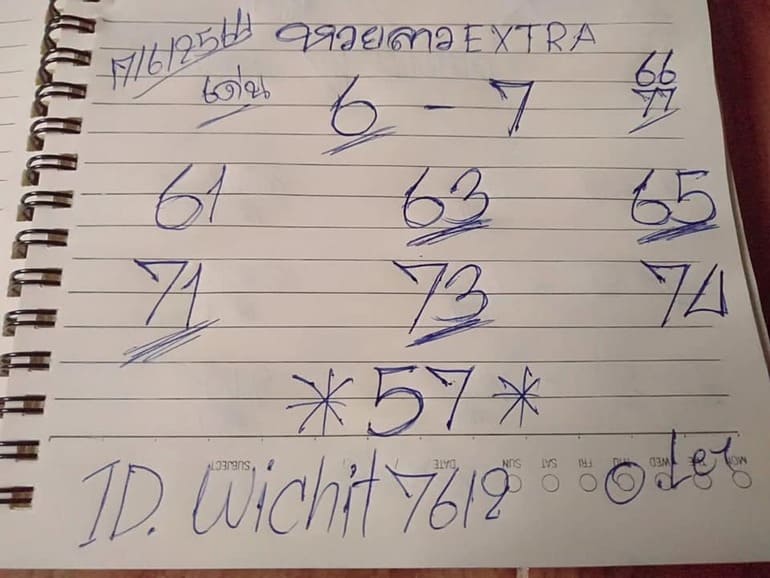 17/6/25 หวยลาว EXTRA
เด่น 6 - 7 66
77
61 63 65
71 73 74
*57*
SUBJECT DATE SUN SAT FRI THU WED TUE MON
ID. Wichit 7612